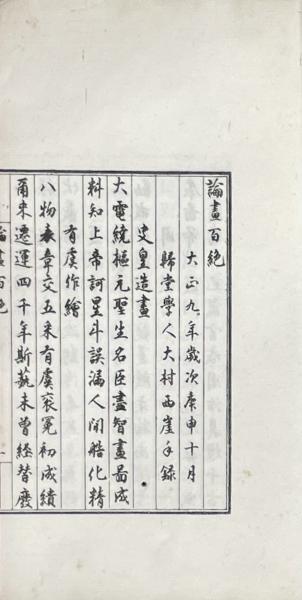 論畫百絕
大正九年歲次庚申十月
歸堂學人大村西崖手錄
史皇造畫
大電繞樞元聖生名臣盡智畫啚成
料知上帝訶星斗誤漏人間艁化精
有虞作繪
八物表章交五采有虞袞冕初成繢
爾來遷運四千年斯藝未曾經替廢
論畫百絕
一